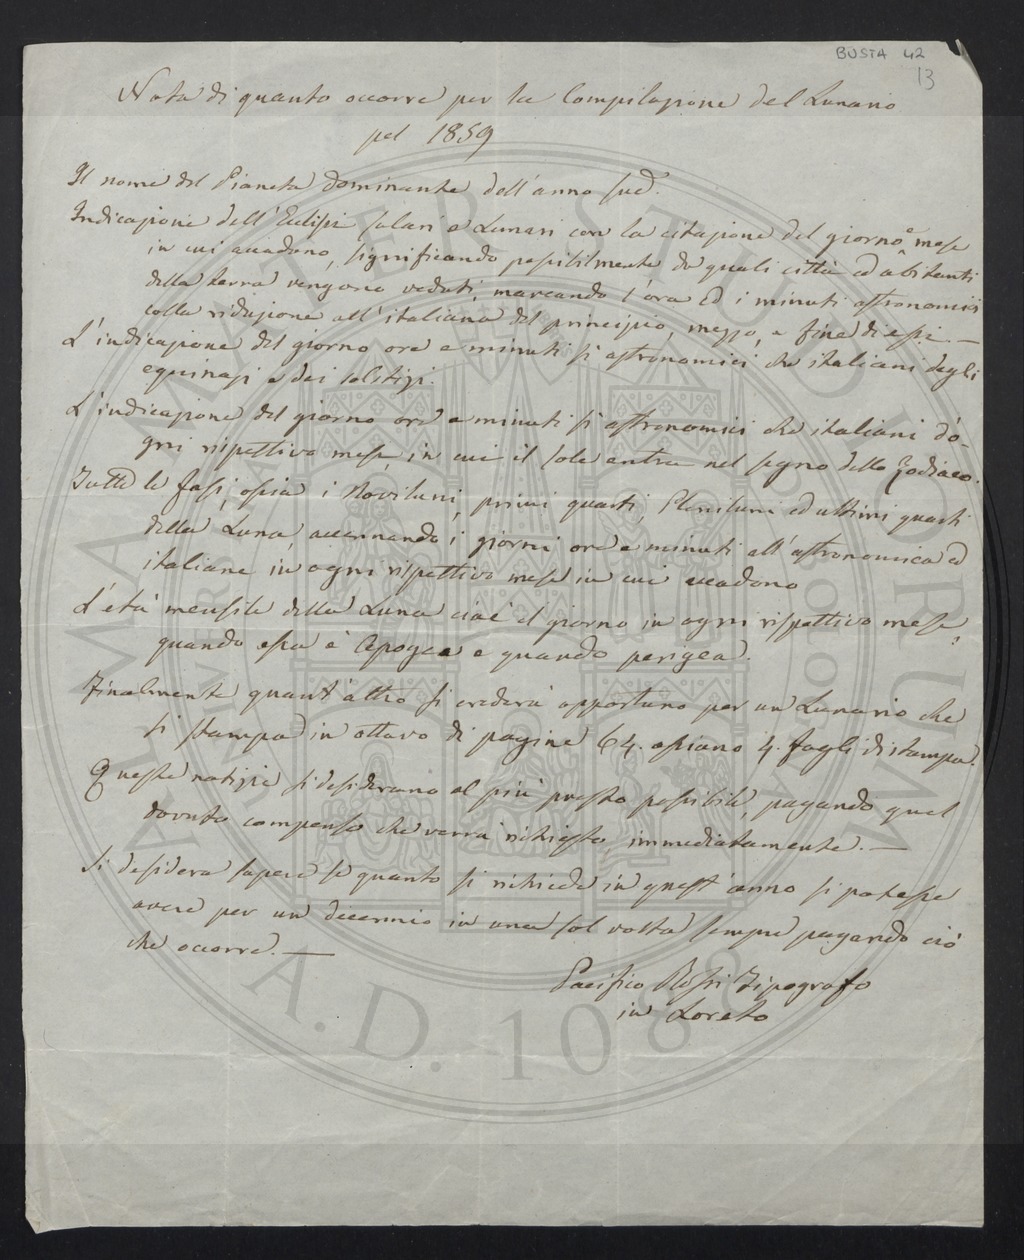 BUSTA 42
13
Nota di quanto occorre per la Compilazione del Lunario
pel 1859
Il nome del Pianeta dominante dell'anno sud.
Indicazione dell'Eclissi solari e Lunari con la citazione del giorno e mese
in cui accadono, significando possibilmente da quali città ed abitanti
della terra vengono veduti, marcando l'ora ed i minuti astronomici
colla riduzione all'italiana del principio, mezzo, e fine di essi. —
L'indicazione del giorno ore e minuti sì astronomici che italiani degli
equinozi e dei solstizi.
L'indicazione del giorno ore e minuti sì astronomici che italiani d'o-
gni rispettivo mese, in cui il sole entra nel segno dello Zodiaco.
Tutte le fasi, ossia i Noviluni, primi quarti, Pleniluni ed ultimi quarti
della Luna, accennando i giorni ore e minuti all'astronomica ed
italiane in ogni rispettivo mese in cui accadono
L'età mensile della Luna cioè il giorno in ogni rispettivo mese,
quando essa è Apogea e quando perigea.
Finalmente quant'altro si crederà opportuno per un Lunario che
si stampa in ottavo di pagine 64. ossiano 4. fogli di stampa.
Queste notizie si desiderano al più presto possibile, pagando quel
dovuto compenso che verrà richiesto, immediatamente. —
Si desidera sapere se quanto si richiede in quest'anno si potesse
avere per un decennio in una sol volta sempre pagando ciò
che occorre. —
Pacifico Rossi Tipografo
in Loreto
ALMA MATER STUDIORUM
A.D. 1088